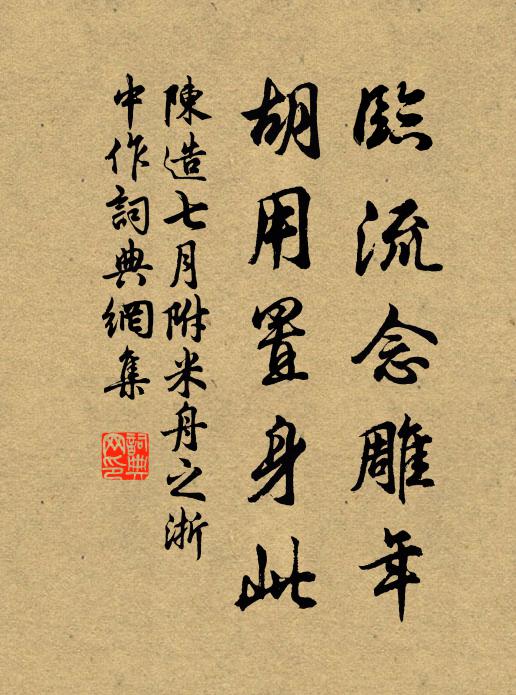 臨流念雕年
胡用置身此
陳造七月附米舟之浙
中作詞典網集
詞典网印